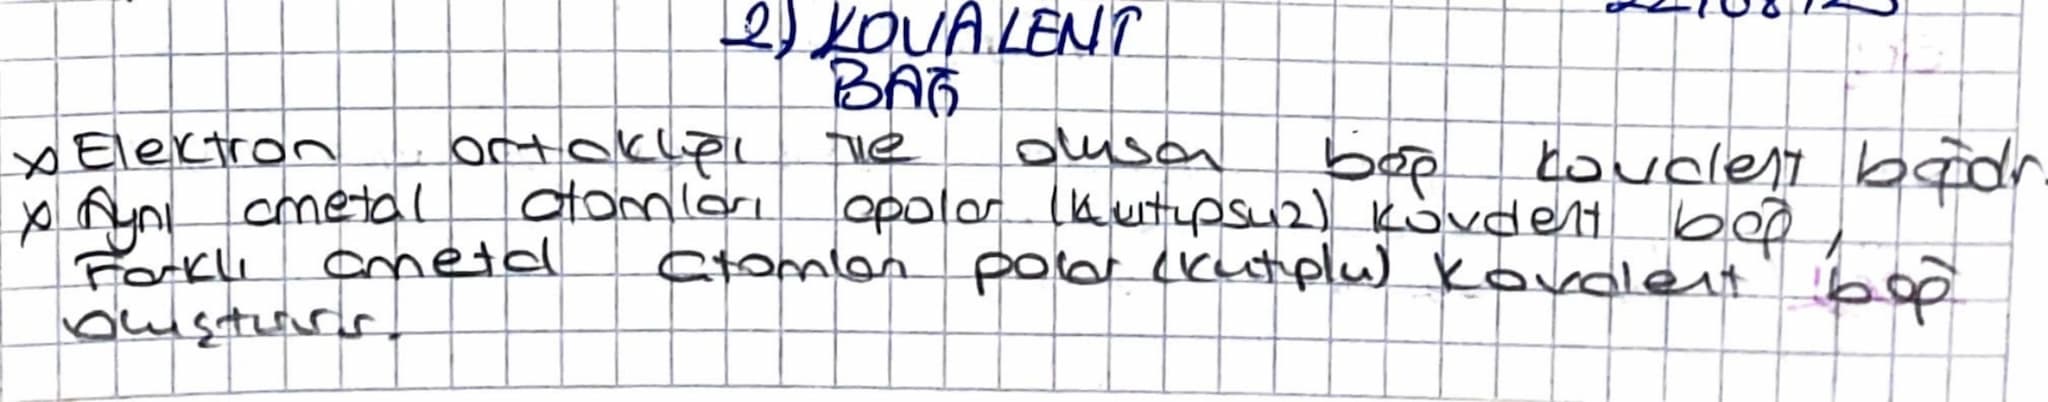 2) KOVALENT
BAĞ
x Elektron ortaklığı ile oluşan bağ kovalent bağdır.
x Aynı ametal atomları apolar (kutupsuz) kovalent bağ,
Farklı ametal atomları polar (kutuplu) kovalent bağ
oluşturur.